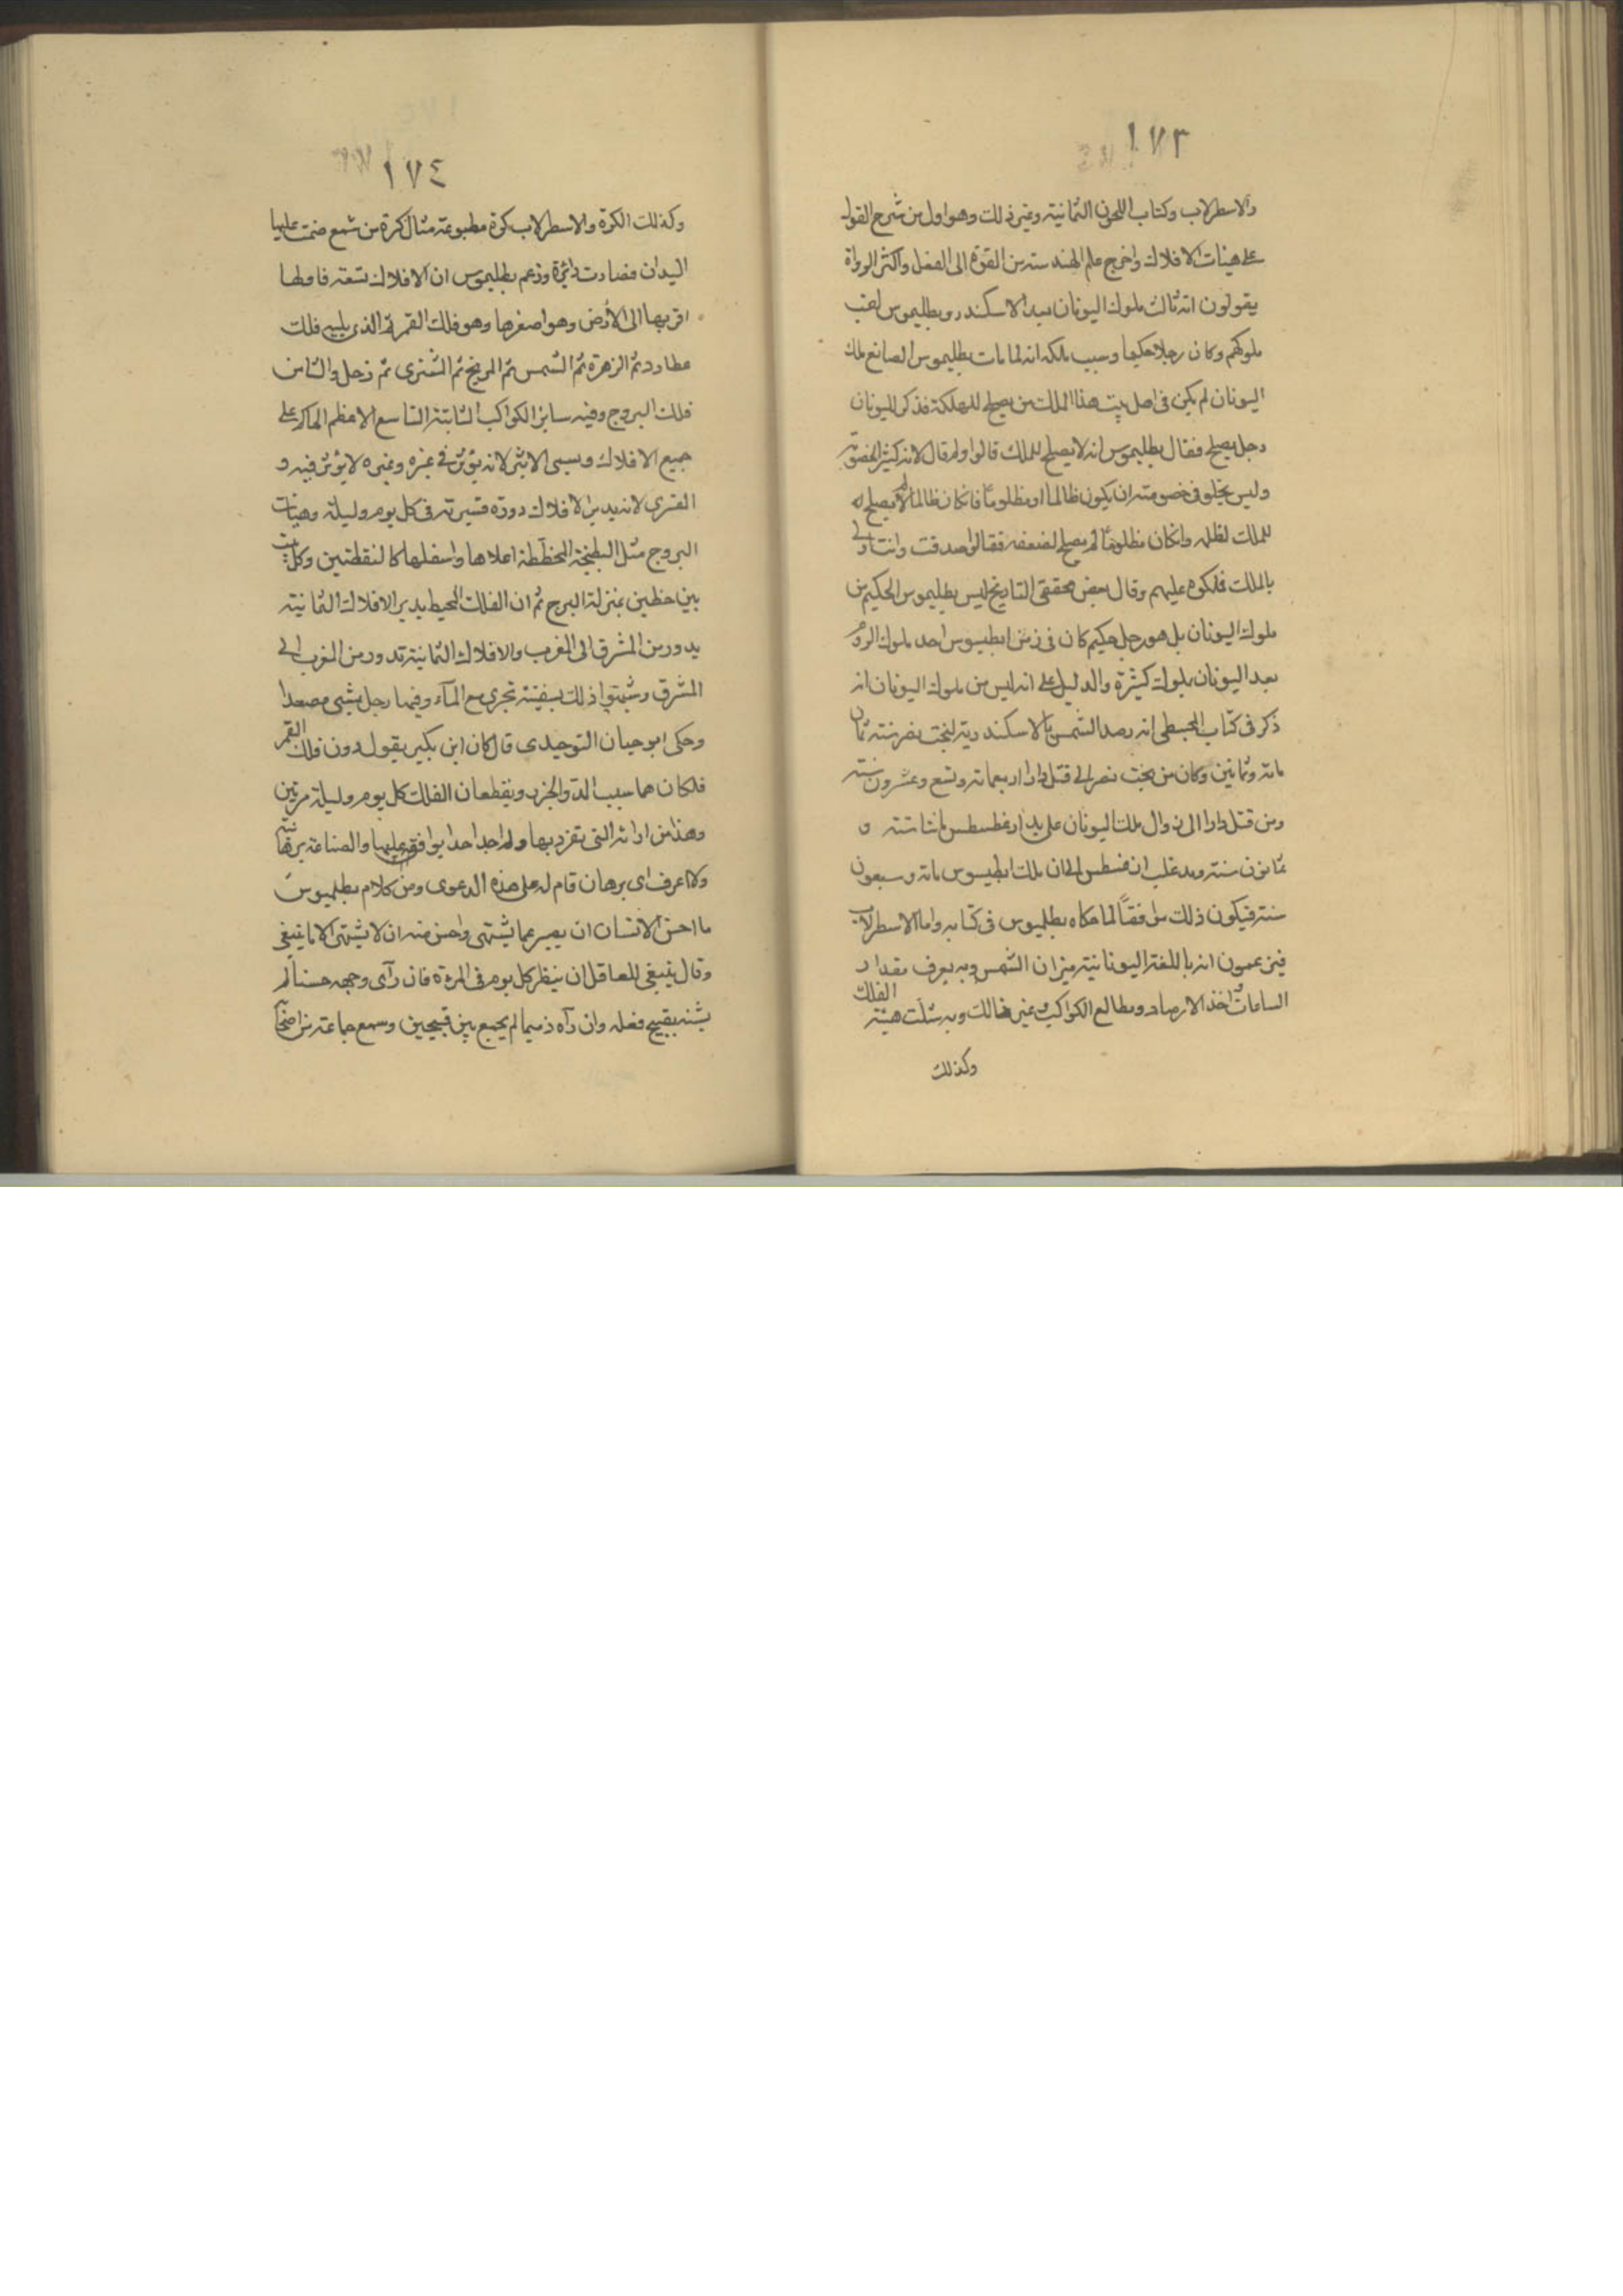 ١٧٣
والاسطرلاب وكتاب اللحون الثمانية وغير ذلك وهو اول من شرح القول
على هيئات الافلاك واخرج علم الهندسة من القوة الى الفعل واكثر الرواة
يقولون انه ثالث ملوك اليونان بعد الاسكندر وبطليموس لقب
ملوكهم وكان رجلا حكيما وسبب ملكه انه لما مات بطليموس الصانع ملك
اليونان لم يكن فى اهل بيت هذا الملك من يصلح للمملكة فذكر لليونان
رجل يصلح فقال بطليموس انه لا يصلح للملك قالوا ولم قال لانه كثير الخصومة
وليس يخلو فى خصومته ان يكون ظالما او مظلوما فان كان ظالما لا يصلح
للملك لظلمه وان كان مظلوما لم يصلح لضعفه فقالوا صدقت وانت اولى
بالملك فملكوه عليهم وقال بعض محققى التاريخ ليس بطليموس الحكيم من
ملوك اليونان بل هو رجل حكيم كان فى زمن ابطيسوس احد ملوك الروم
بعد اليونان بملوك كثيرة والدليل على انه ليس من ملوك اليونان انه
ذكر فى كتاب المجسطى انه رصد الشمس بالاسكندرية لبخت نصر سنة ثمان
ماية وثمانين وكان من بخت نصر الى قتل دارا اربعماية وتسع وعشرون سنة
ومن قتل دارا الى زوال ملك اليونان على يد اوغسطس مائتا سنة و
ثمانون سنة ومد غلب اغسطس الى ان ملك ابطيسوس ماية وسبعون
سنة فيكون ذلك موافقًا لما حكاه بطليموس فى كتابه واما الاسطرلاب
فيزعمون انه باللغة اليونانية ميزان الشمس وبه يعرف مقدار
الساعات واخذ الارصاد ومطالع الكواكب وغير ذالك وبه مثلت هيئة الفلك
وكذلك
١٧٤
وكذلك الكرة والاسطرلاب كرة مطبوعة مثال كرة من شمع ضمت عليها
اليدان فصارت دائرة وزعم بطليموس ان الافلاك تسعة فاولها
اقربها الى الأرض وهو اصغرها وهو فلك القمر ثم الذى يليه فلك
عطارد ثم الزهرة ثم الشمس ثم المريخ ثم المشترى ثم زحل والثامن
فلك البروج وفيه ساير الكواكب الثابتة التاسع الاعظم الحاكم على
جميع الافلاك ويسمى الاثير لانه يؤثر فى غيره وغيره لا يؤثر فيه و
القسرى لانه يدير الافلاك دورة قسرية فى كل يوم وليلة وهيئات
البروج مثل البطيخة المخططة اعلاها واسفلها كالنقطتين وكل بيت
بين خطين بمنزلة البرج ثم ان الفلك المحيط يدير الافلاك الثمانية
يدور من المشرق الى المغرب والافلاك الثمانية تدور من المغرب الى
المشرق وشبهوا ذلك بسفينة تجرى مع المآء وفيها رجل يمشى مصعدا
وحكى ابو حيان التوحيدى قال كان ابن بكير يقول دون فلك القمر
فلكان هما سبب المد والجزر ويقطعان الفلك كل يوم وليلة مرتين
وهذا من ارائه التى تفرد بها ولم اجد احدا يوافقه عليها والصناعة برهانية
ولا اعرف اى برهان قام له على هذه الدعوى ومن كلام بطلميوس
ما احسن الانسان ان يصبر عما يشتهى واحسن منه ان لا يشتهى الا ما ينبغى
وقال ينبغى للعاقل ان ينظر كل يوم فى المرءة فان رآى وجهه حسنا لم
يشنه بقبيح فعله وان رآه ذميما لم يجمع بين قبيحين وسمع جماعة من اصحآ